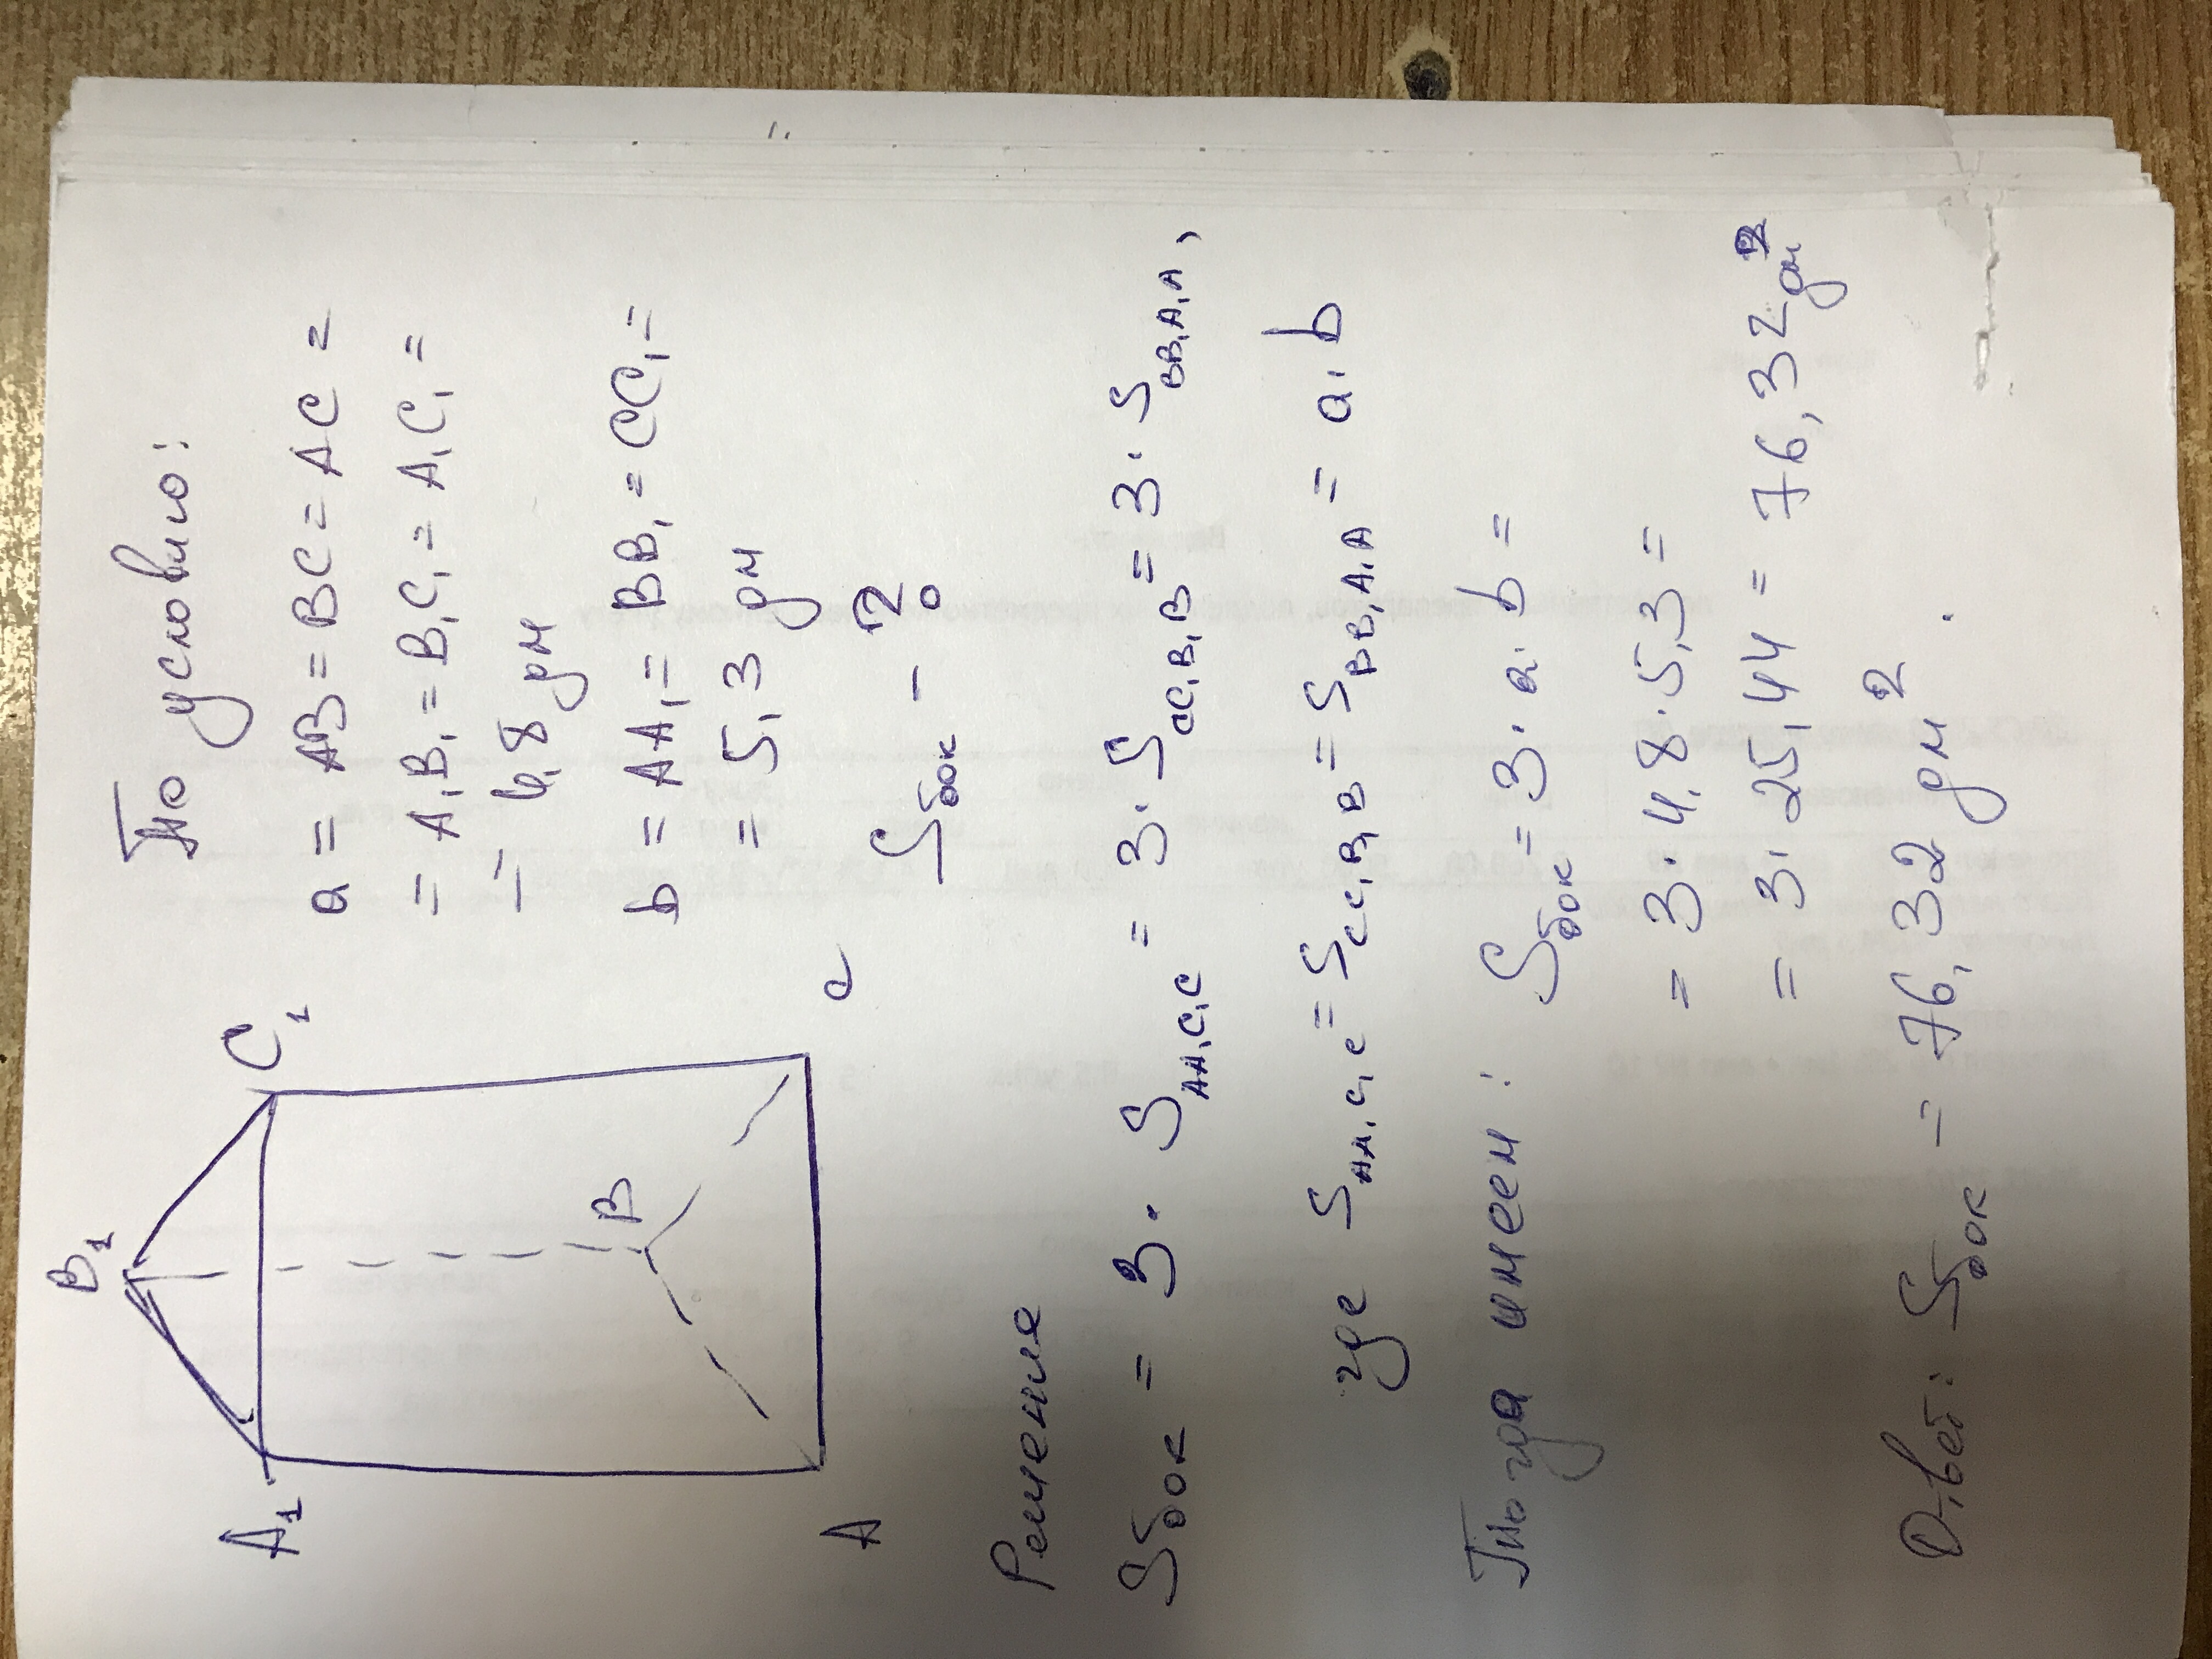 B₁
C₁
A₁
B
A
C
По условию:
a = AB = BC = AC =
= A₁B₁ = B₁C₁ = A₁C₁ =
= 4,8 дм
b = AA₁ = BB₁ = CC₁ =
= 5,3 дм
Sбок – ?
Решение
Sбок = 3 · S_AA₁C₁C = 3 · S_CC₁B₁B = 3 · S_BB₁A₁A,
где S_AA₁C₁C = S_CC₁B₁B = S_BB₁A₁A = a · b
Тогда имеем: Sбок = 3 · a · b =
= 3 · 4,8 · 5,3 =
= 3 · 25,44 = 76,32 дм²
Ответ: Sбок = 76,32 дм².